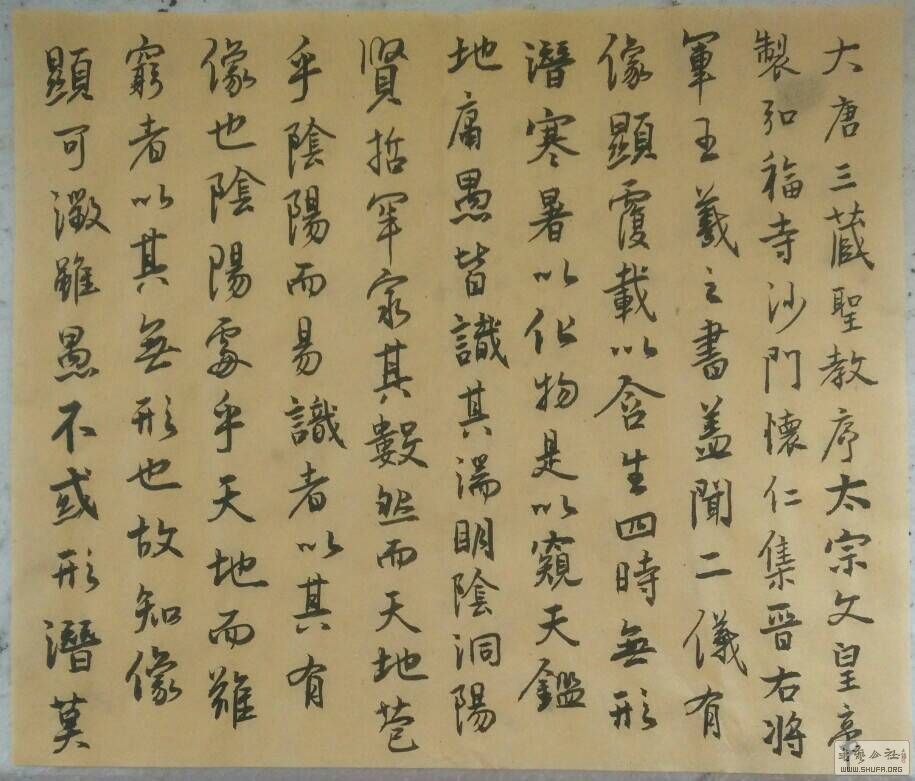 大唐三藏聖教序太宗文皇帝
製弘福寺沙門懷仁集晉右將
軍王羲之書蓋聞二儀有
像顯覆載以含生四時無形
潛寒暑以化物是以窺天鑑
地庸愚皆識其端明陰洞陽
賢哲罕窮其數然而天地苞
乎陰陽而易識者以其有
像也陰陽處乎天地而難
窮者以其無形也故知像
顯可徵雖愚不惑形潛莫
WWW.SHUFA.ORG